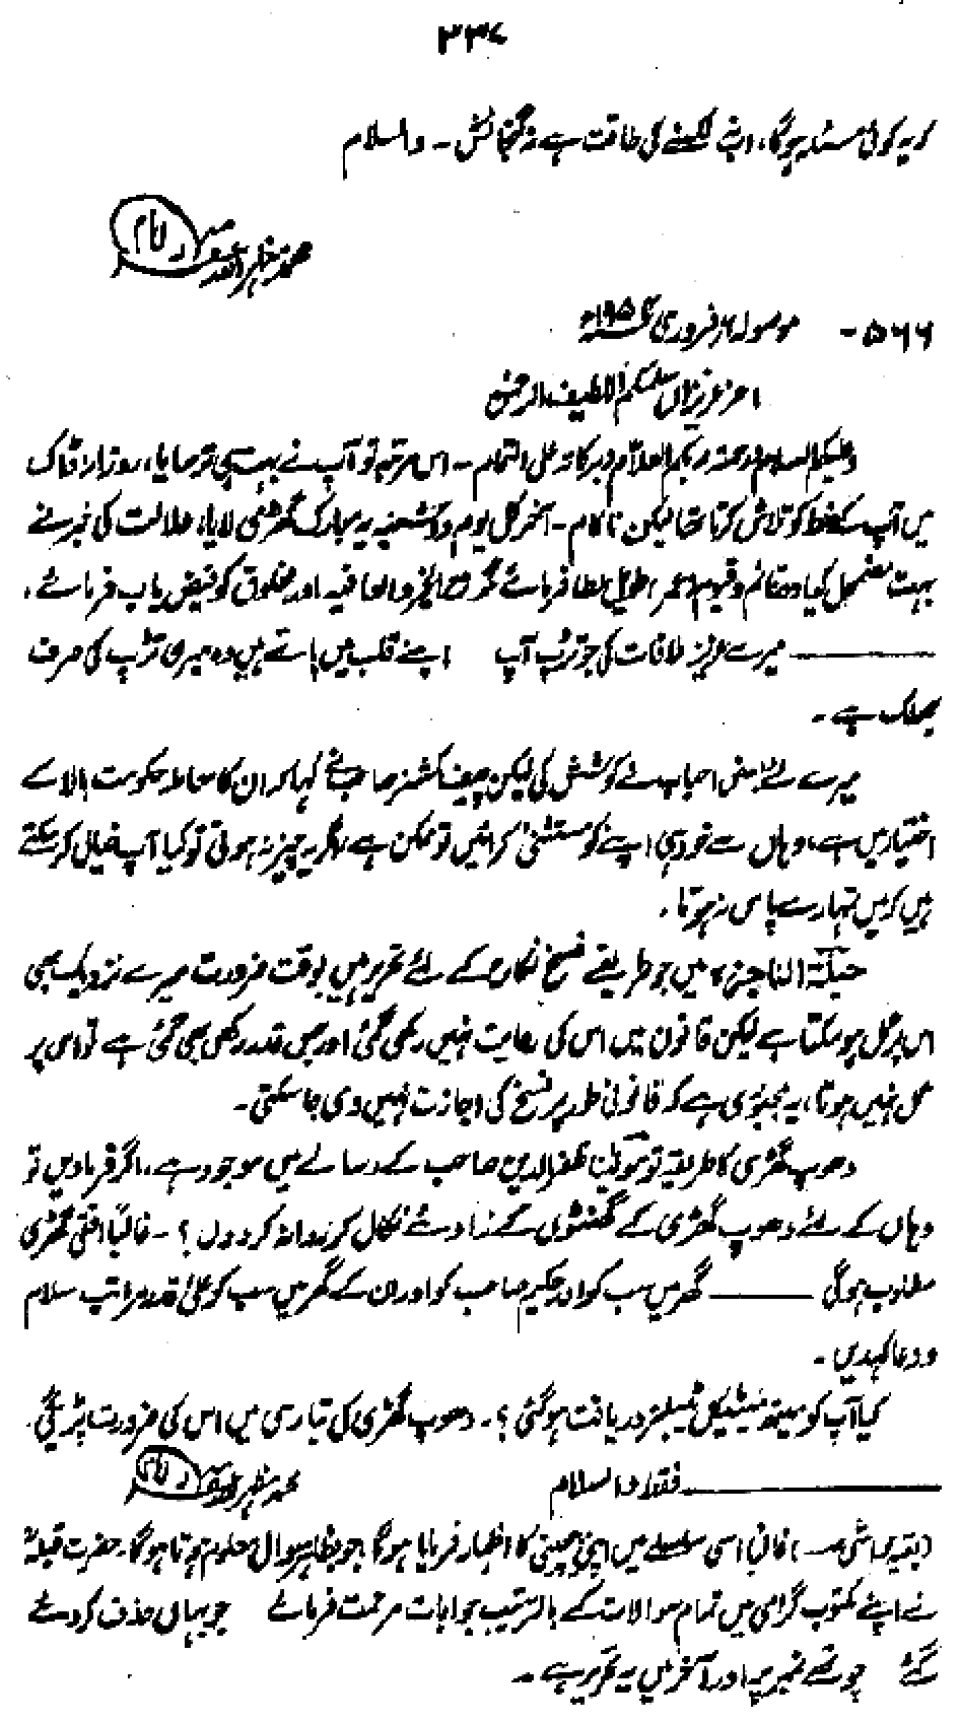 ۳۳۷
کہ یہ کوئی مسئلہ ہوگا، اب نہ لکھنے کی طاقت ہے نہ گنجائش ۔ والسلام
محمد مظہر اللہ غفرلہ امام
۵۶۶ - موصولہ فروری ۱۹۵۶ء
اعز عزیزاں سلمکم اللطیف الرحمن
وعلیکم السلام ورحمۃ ربکم العلّام وبرکاتہ علی التمام ۔ اس مرتبہ تو آپ نے بہت ہی ترسایا، روزانہ ڈاک
میں آپ کے خط کو تلاش کرتا تھا لیکن ناکام ۔ آخر کل یوم دو شنبہ یہ مبارک گھڑی لایا، علالت کی خبر نے
بہت مضمحل کیا وہ قائم و قیوم عمر طویل عطا فرمائے مگر مع الخیر والعافیہ اور مخلوق کو فیض یاب فرمائے،
——— میرے عزیز ملاقات کی جو تڑپ آپ اپنے قلب میں پاتے ہیں وہ میری تڑپ کی صرف
جھلک ہے ۔
میرے لئے بعض احباب نے کوشش کی لیکن چیف کمشنر صاحب نے کہا کہ ان کا معاملہ حکومت بالا کے
اختیار میں ہے، وہاں سے خود ہی اپنے کو مستثنیٰ کرائیں تو ممکن ہے، اگر یہ چیز نہ ہوتی تو کیا آپ خیال کر سکتے
ہیں کہ میں تمہارے پاس نہ ہوتا ۔
حیلۃ الناجزہ میں جو طریقے فسخ نکاح کے لئے تحریر ہیں بوقت ضرورت میرے نزدیک بھی
اس پر عمل ہو سکتا ہے لیکن قانون میں اس کی رعایت نہیں رکھی گئی اور جس قدر رکھی بھی گئی ہے تو اس پر
عمل نہیں ہوتا، یہ مجبوری ہے کہ قانونی طور پر فسخ کی اجازت نہیں دی جا سکتی ۔
دھوپ گھڑی کا طریقہ تو مولیٰنا ظفر الدین صاحب کے رسالے میں موجود ہے، اگر فرمادیں تو
وہاں کے لئے دھوپ گھڑی کے گھنٹوں کے زاوئے نکال کر روانہ کردوں ؟ ۔ غالباً افقی گھڑی
مطلوب ہوگی ——— گھر میں سب کو اور حکیم صاحب کو اور ان کے گھر میں سب کو علیٰ قدر مراتب سلام
و دعا کہدیں ۔
کیا آپ کو میتھ میٹیکل ٹیبلز دریافت ہوگئی ؟ ۔ دھوپ گھڑی کی تیاری میں اس کی ضرورت پڑے گی ۔
——— فقط والسلام محمد مظہر اللہ امام
(بقیہ حاشی ) غالباً اسی سلسلے میں اپنی بے چینی کا اظہار فرمایا ہوگا جو بظاہر سوال معلوم ہوتا ہوگا ۔ حضرت قبلہ
نے اپنے مکتوب گرامی میں تمام سوالات کے بالترتیب جوابات مرحمت فرمائے جو یہاں حذف کردئے
گئے چوتھے نمبر پہ اور آخر میں یہ تحریر ہے ۔